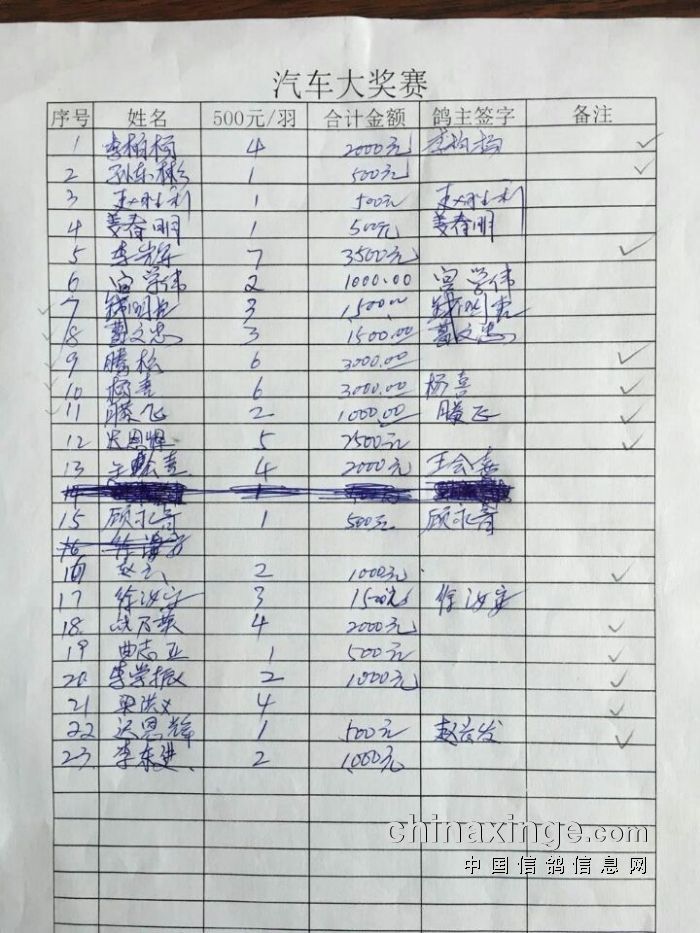 汽车大奖赛
序号 姓名 500元/羽 合计金额 鸽主签字 备注
1 李柏杨 4 2000元 李柏杨
2 孙东彬 1 500元
3 赵胜利 1 500元 赵胜利
4 姜春明 1 500元 姜春明
5 李岩军 7 3500元
6 宫学伟 2 1000.00 宫学伟
7 3 1500.00
8 葛文忠 3 1500.00 葛文忠
9 腾松 6 3000.00
10 杨喜 6 3000.00 杨喜
11 滕飞 2 1000.00 滕飞
12 迟恩辉 5 2500元
13 4 2000元 王会喜
15 顾永奇 1 500元 顾永奇
16
2 1000元
17 徐汝安 3 1500元 徐汝安
18. 战万英 4 2000元
19 曲志亚 1 500元
20 李学振 2 1000元
21 梁洪义 4
22 迟恩辉 1 500元 赵长发
23 李东进 2 1000元
chinaxinge.com
中国信鸽信息网